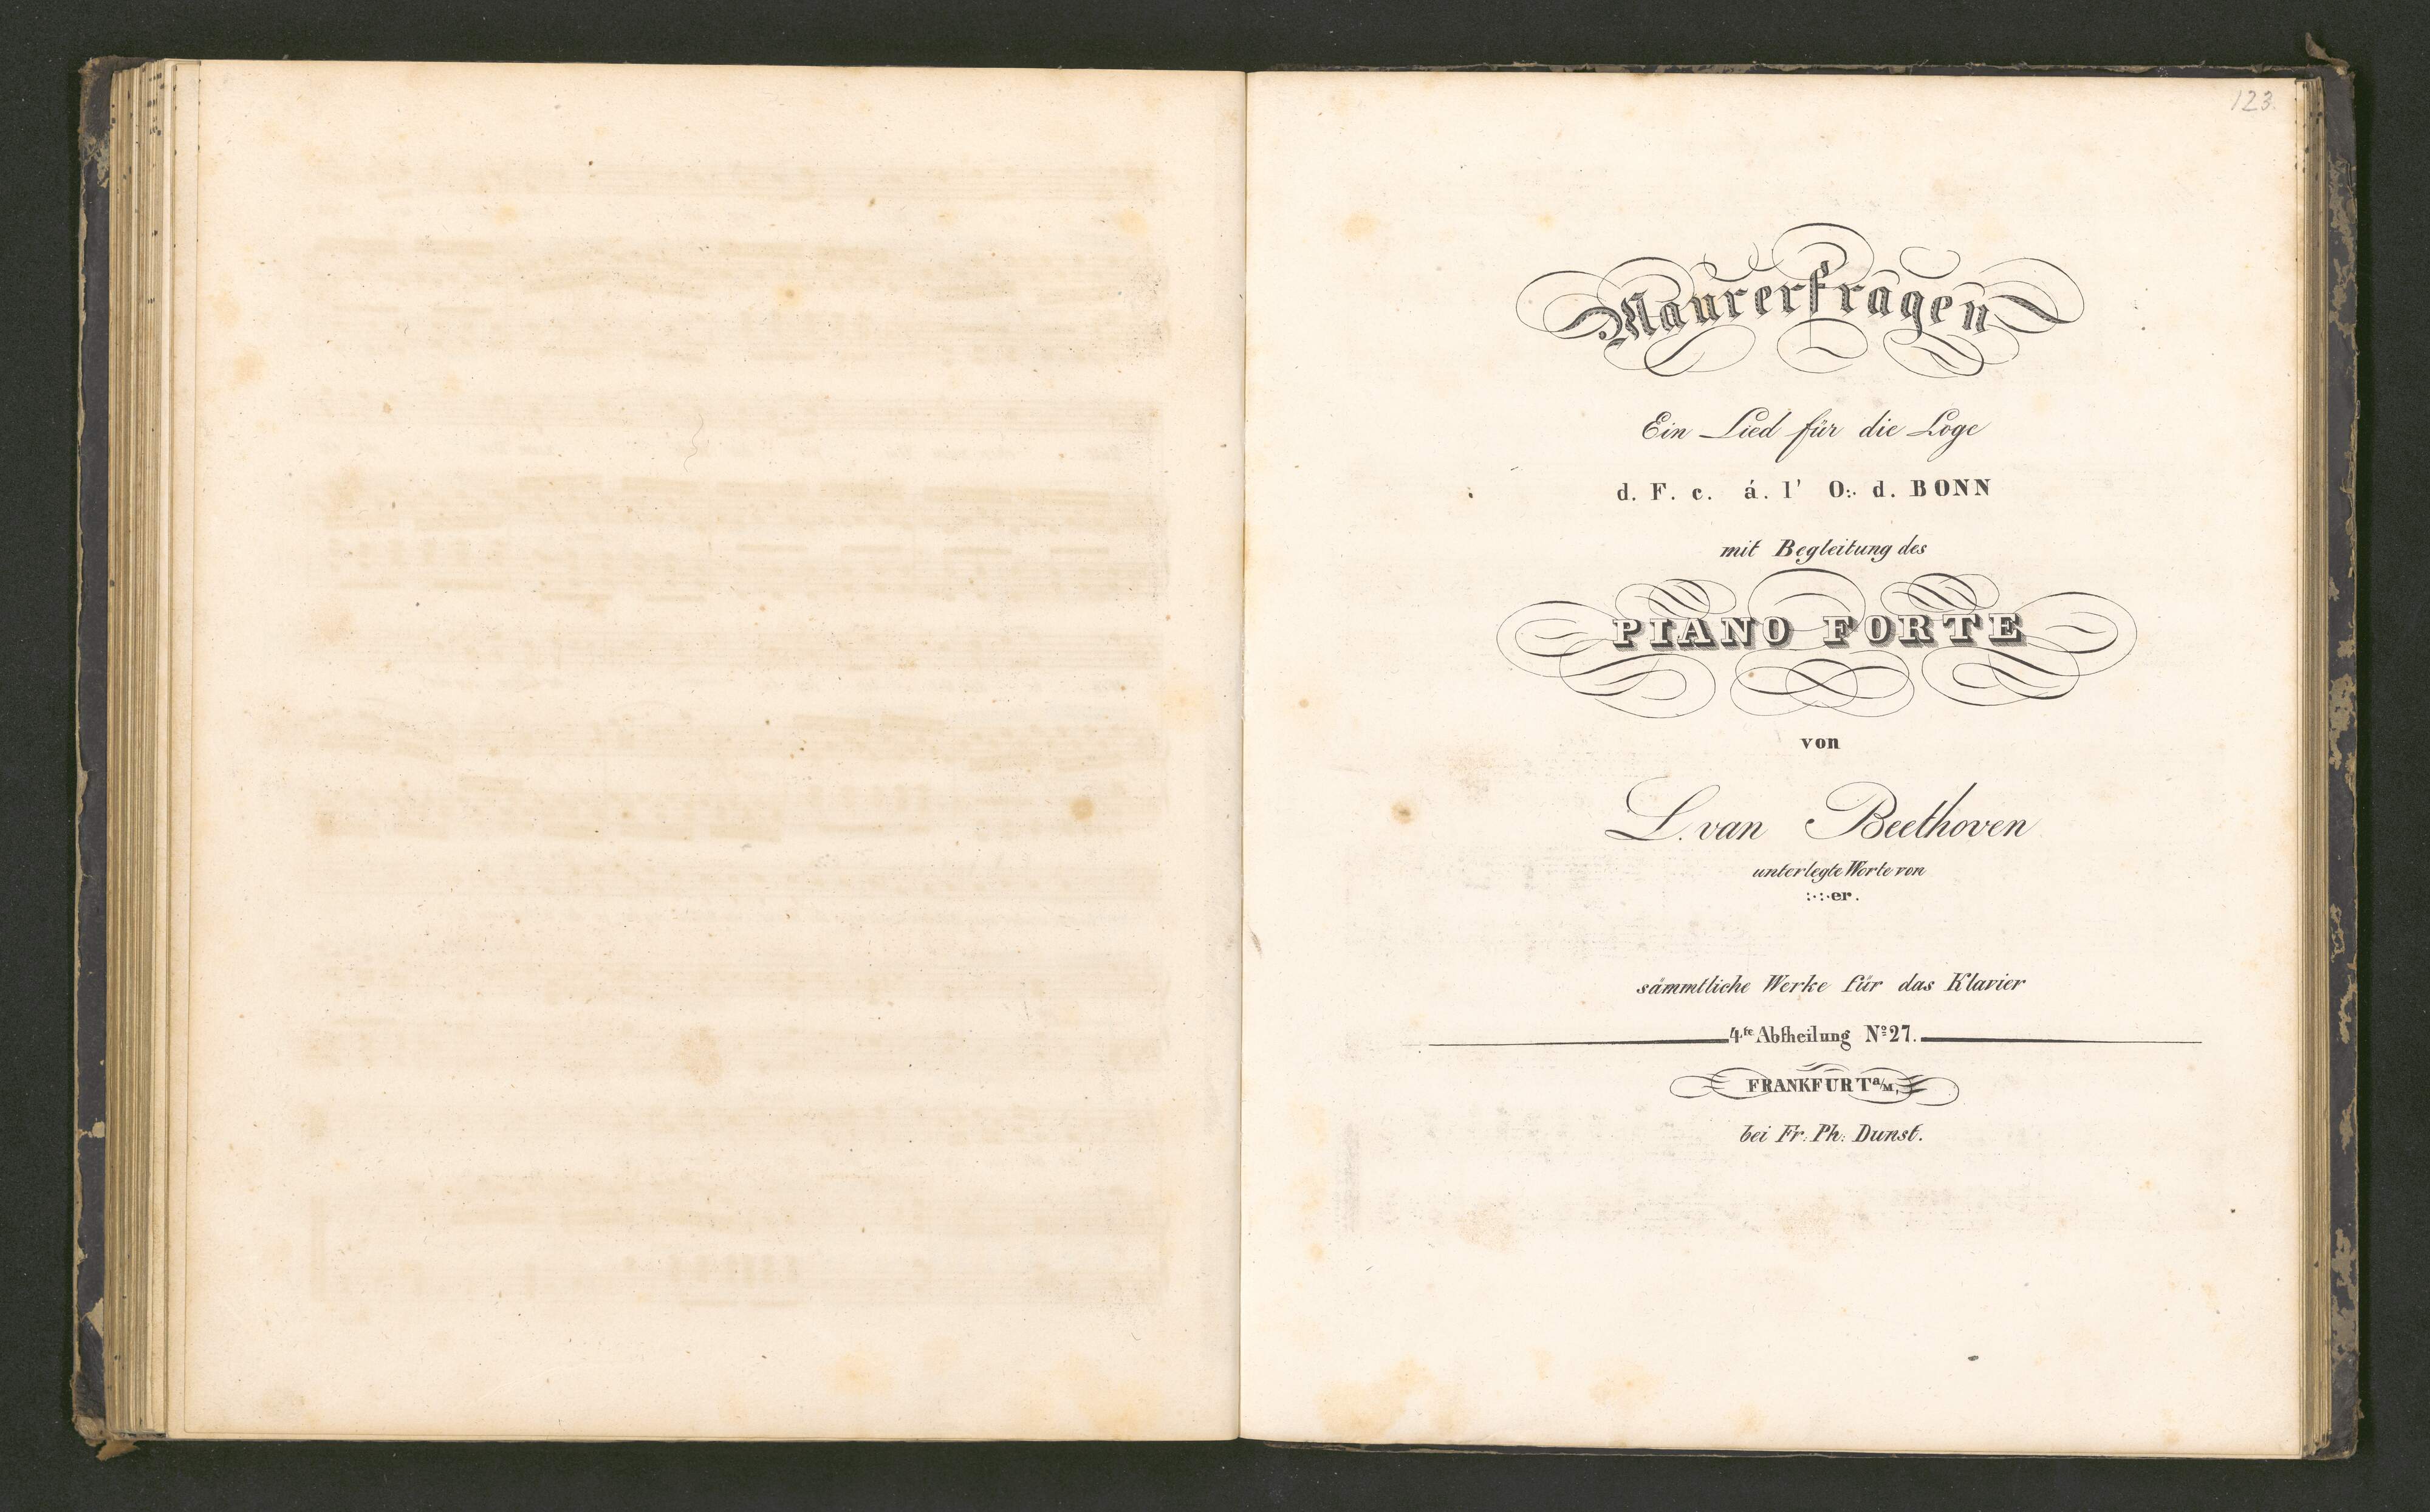 123.
Maurerfragen
Ein Lied für die Loge
d. F. c. á. l' O:. d. BONN
mit Begleitung des
PIANO FORTE
von
L. van Beethoven
unterlegte Worte von
:·:·er.
sämmtliche Werke für das Klavier
4te Abtheilung No 27.
FRANKFURT a/M,
bei Fr: Ph: Dunst.